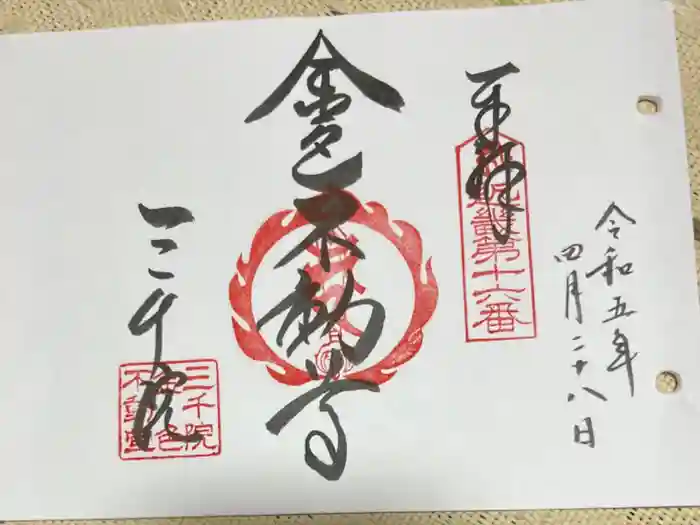 令和五年
四月二十八日
奉拝
近畿第十六番
金色不動尊
三千院
三千院
金色
不動堂